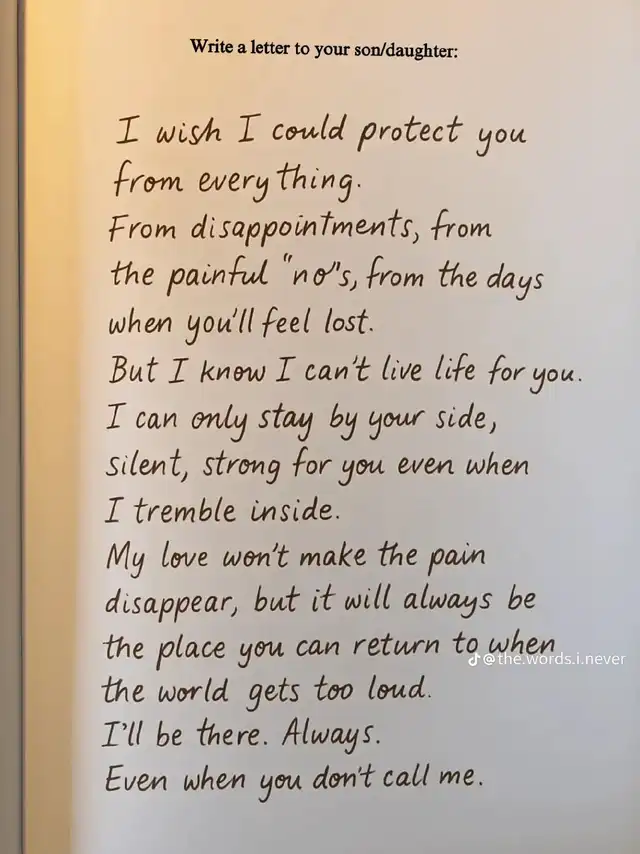 Write a letter to your son/daughter:
I wish I could protect you
from everything.
From disappointments, from
the painful "no"s, from the days
when you'll feel lost.
But I know I can't live life for you.
I can only stay by your side,
silent, strong for you even when
I tremble inside.
My love won't make the pain
disappear, but it will always be
the place you can return to when
@the.words.i.never
the world gets too loud.
I'll be there. Always.
Even when you don't call me.